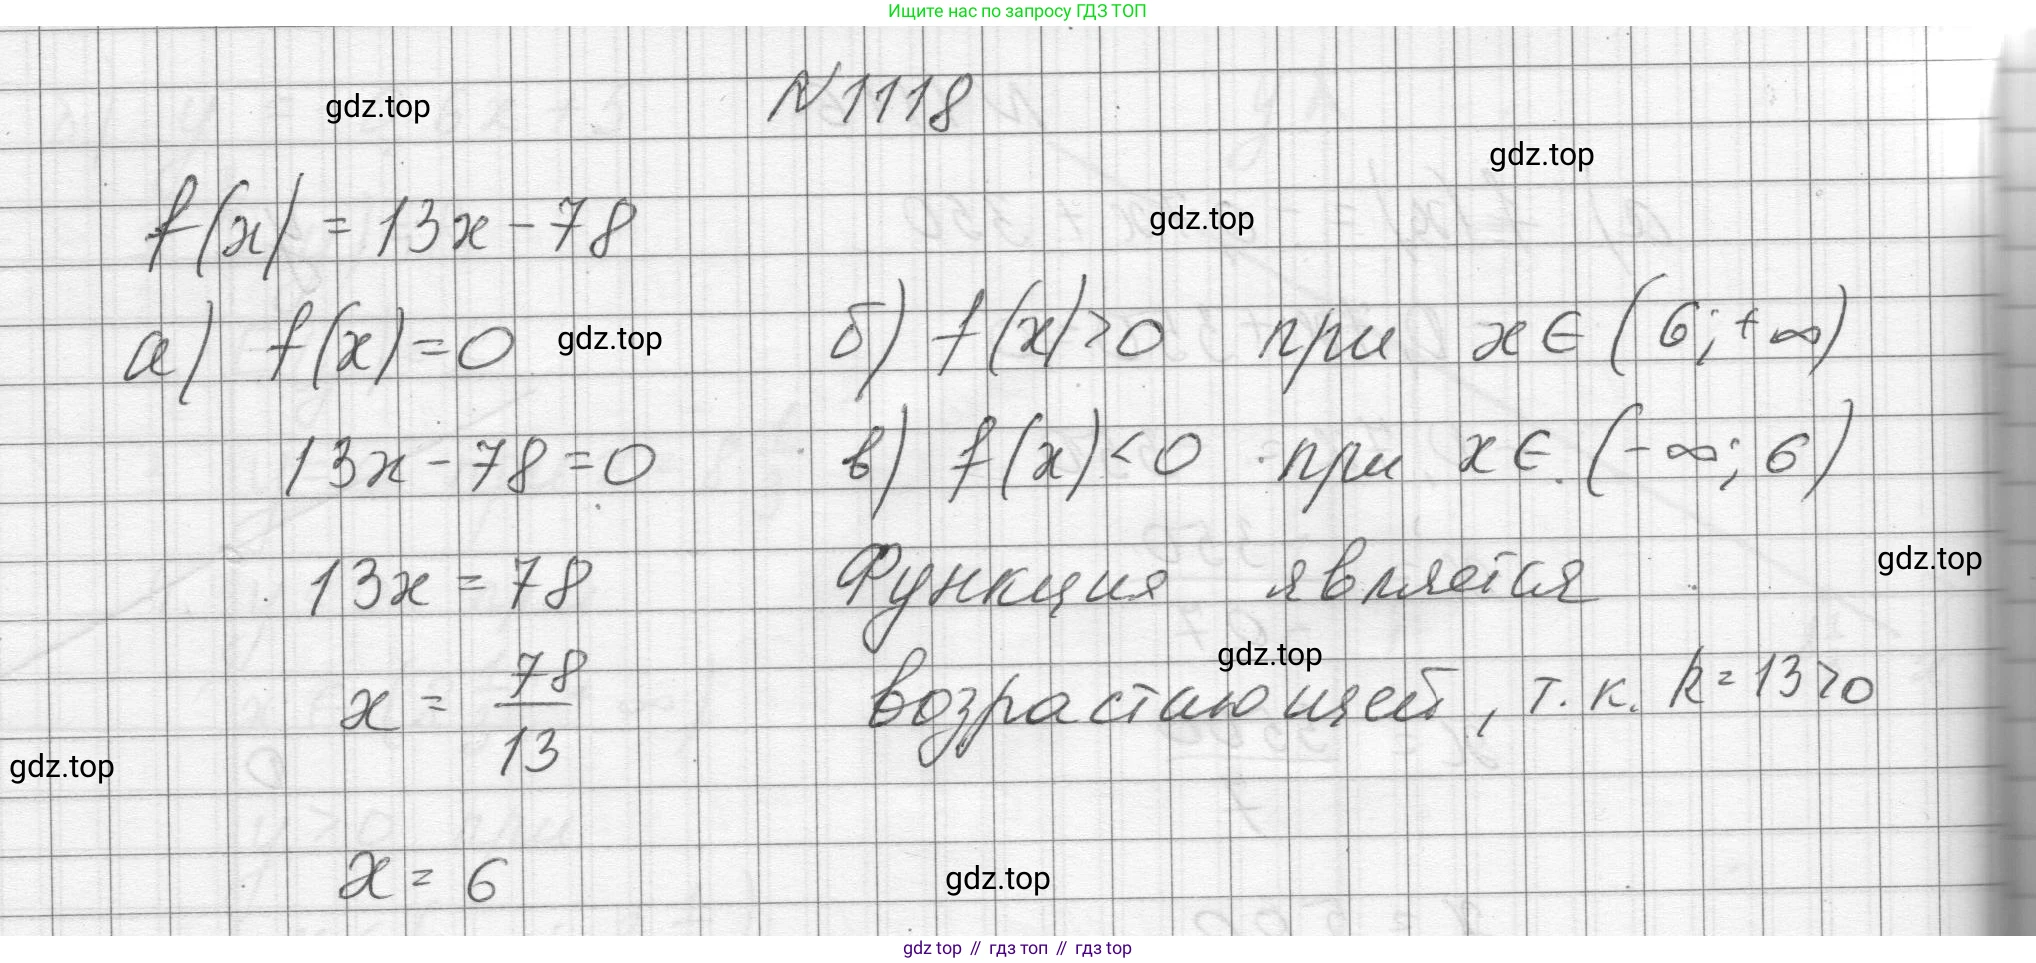 Ищите нас по запросу ГДЗ ТОП
N 1118
gdz.top
gdz.top
f(x) = 13x - 78
gdz.top
а) f(x) = 0
gdz.top
13x - 78 = 0
13x = 78
x = 78/13
x = 6
б) f(x) > 0 при x ∈ (6; +∞)
в) f(x) < 0 при x ∈ (-∞; 6)
Функция является
gdz.top
gdz.top
возрастающей, т.к. k = 13 > 0
gdz.top
gdz.top
gdz top // гдз топ // гдз top